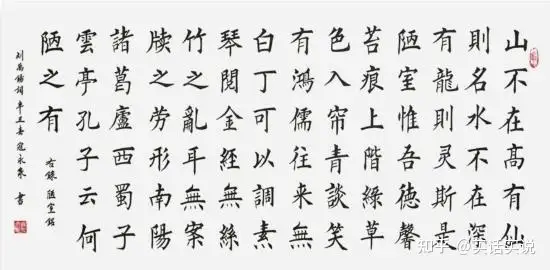 山不在髙有仙
則名水不在深
有龍則靈斯是
陋室惟吾德馨
苔痕上階綠草
色入帘青談笑
有鴻儒往來無
白丁可以調素
琴閱金經無絲
竹之亂耳無案
牘之勞形南陽
諸葛廬西蜀子
雲亭孔子云何
陋之有
右錄 陋室銘
劉禹錫詞 辛丑春 寇永泉 書
知乎 @实话实说